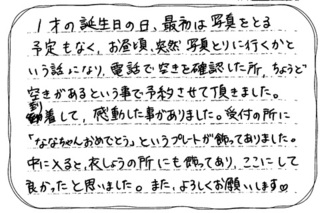 1才の誕生日の日、最初は写真をとる
予定もなく、お昼頃、突然写真とりに行くかと
いう話になり、電話で空きを確認した所、ちょうど
空きがあるという事で予約させて頂きました。
到着して、感動した事がありました。受付の所に
「ななちゃんおめでとう」というプレートが飾ってありました。
中に入ると、衣しょうの所にも飾ってあり、ここにして
良かったと思いました。また、よろしくお願いします♡